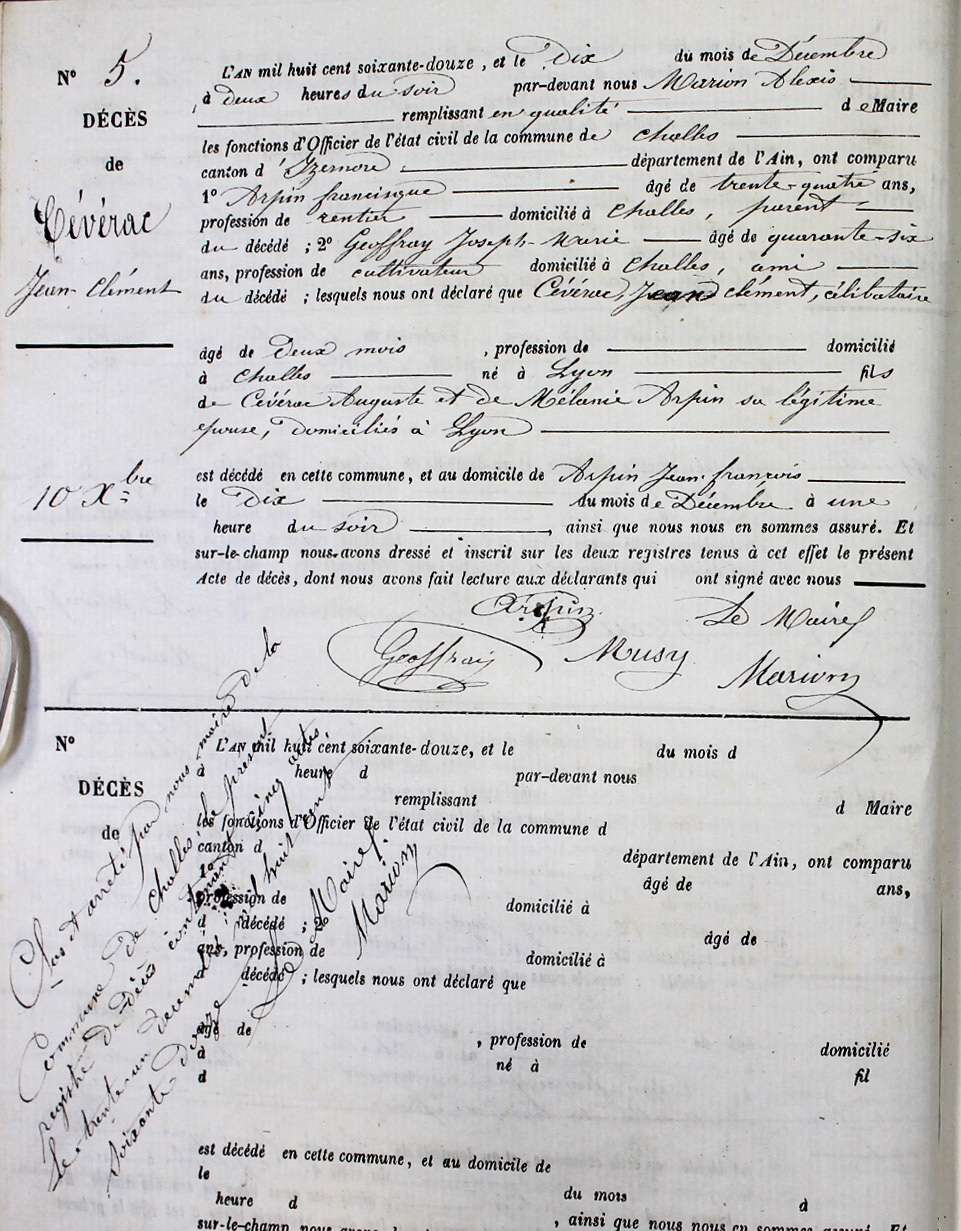 N° 5.
DÉCÈS
de
Cévérac
Jean-Clément
10 Xbre
L'AN mil huit cent soixante-douze, et le Dix du mois de Décembre
à deux heures du soir par-devant nous Marion Alexis
remplissant en qualité de Maire
les fonctions d'Officier de l'état civil de la commune de Challes
canton d'Izernore département de l'Ain, ont comparu
1° Arpin francisque âgé de trente-quatre ans,
profession de rentier domicilié à Challes, parent
du décédé ; 2° Geoffray Joseph-Marie âgé de quarante-six
ans, profession de cultivateur domicilié à Challes, ami
du décédé ; lesquels nous ont déclaré que Cévérac, Jean clément, célibataire
âgé de deux mois , profession de domicilié
à Challes né à Lyon fils
de Cévérac Auguste et de Mélanie Arpin sa légitime
epouse, domiciliés à Lyon
est décédé en cette commune, et au domicile de Arpin Jean-francois
le Dix du mois de Décembre à une
heure du soir , ainsi que nous nous en sommes assuré. Et
sur-le-champ nous avons dressé et inscrit sur les deux registres tenus à cet effet le présent
Acte de décès, dont nous avons fait lecture aux déclarants qui ont signé avec nous
Arpin Le Maire
Geoffray Musy Marion
N°
DÉCÈS
de
L'AN mil huit cent soixante-douze, et le du mois d
à heure d par-devant nous
remplissant d Maire
les fonctions d'Officier de l'état civil de la commune d
canton d département de l'Ain, ont comparu
1° âgé de ans,
profession de domicilié à
d décédé ; 2° âgé de
ans, profession de domicilié à
d décédé ; lesquels nous ont déclaré que
âgé de , profession de domicilié
à né à fil
d
est décédé en cette commune, et au domicile de
le du mois d
heure d , ainsi que nous nous en sommes assuré. Et
sur-le-champ nous avons
Clos et arreté par nous maire de la
Commune de Challes le présent
registre de Décès contenant cinq actes
le trente-un decembre mil huit cent
soixante-douze
Le Maire
Marion